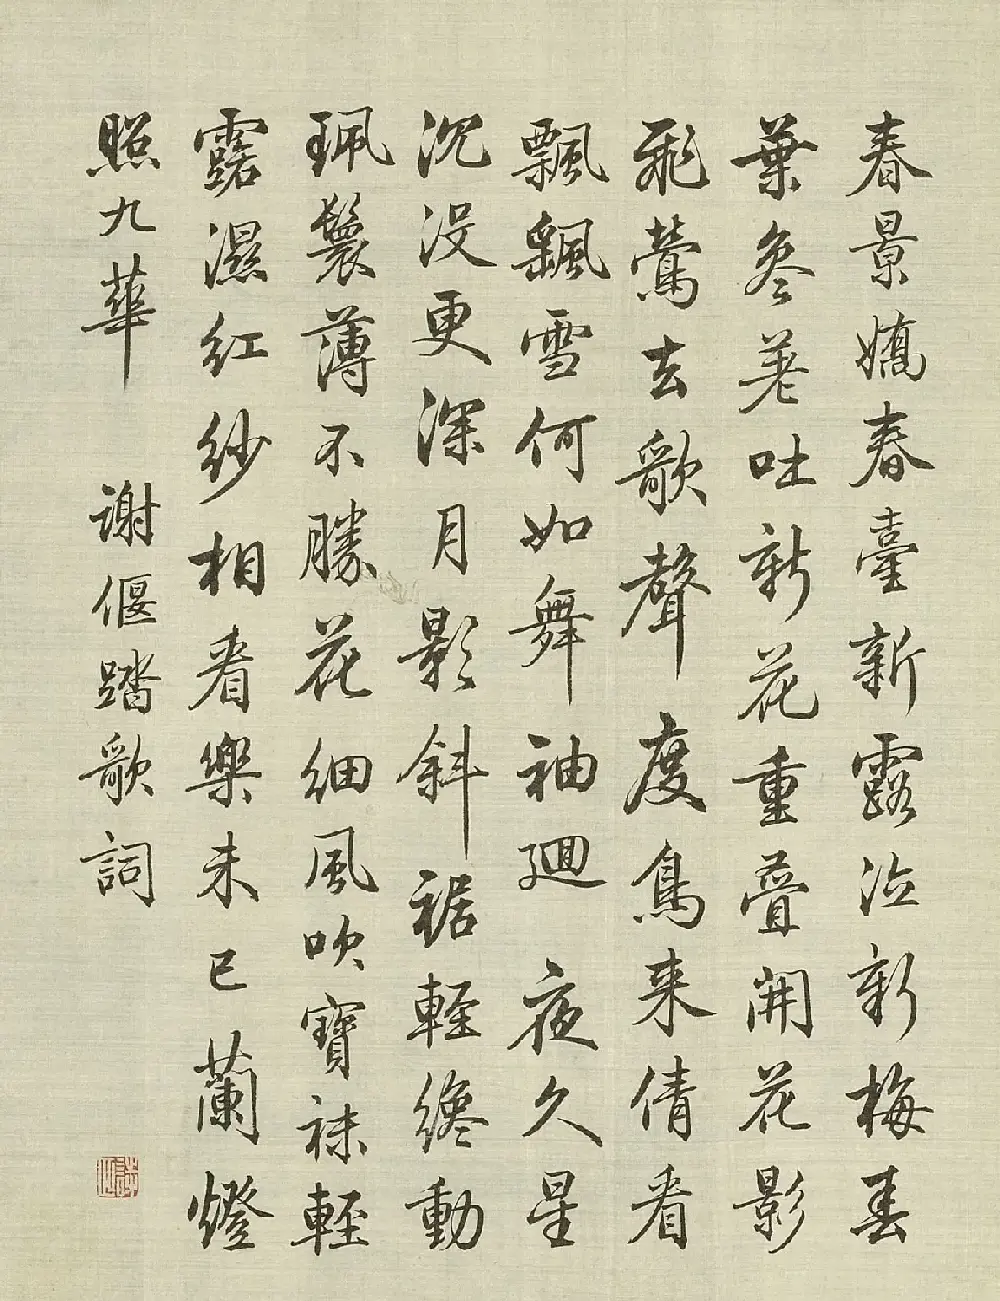 春景嬌春臺新露泣新梅春
葉參差吐新花重疊開花影
飛鶯去歌聲度鳥來倩看
飄颻雪何如舞袖迴夜久星
沉沒更深月影斜裾輕纔動
珮鬟薄不勝花細風吹寶袜輕
露濕紅紗相看樂未已蘭燈
照九華 謝偃踏歌詞